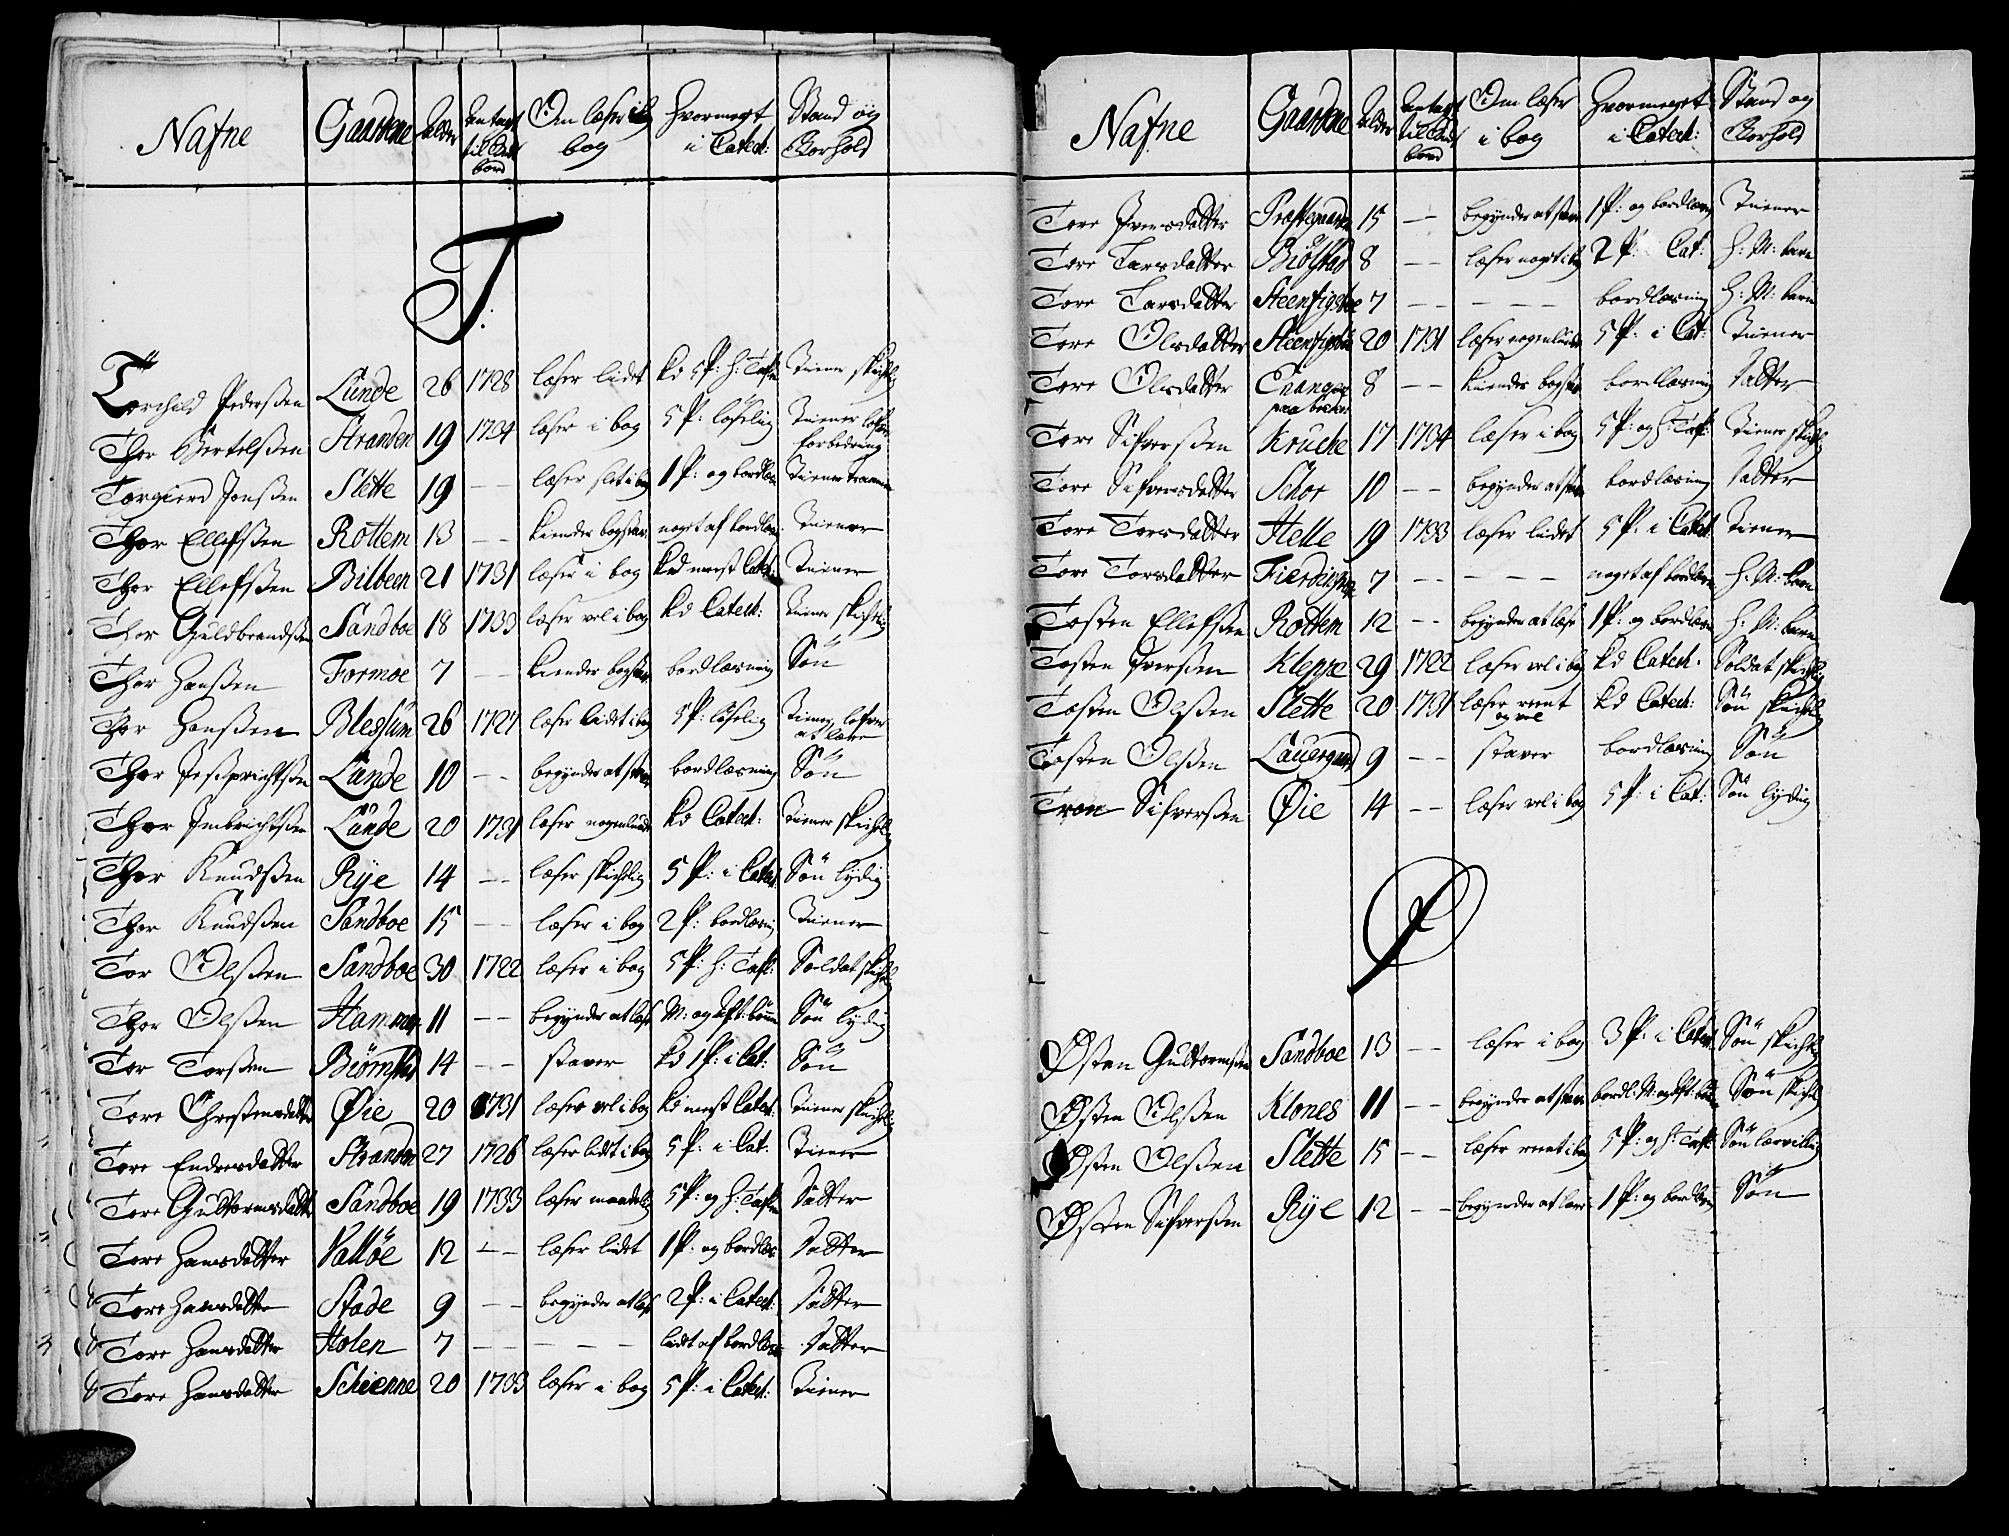 Nafne Gaardene Alder Antagt til Guds bord Om læser i bog Hvormegt i Catech: Stand og Forhold
T.
Torchild Pedersßen Lunde 26 1728 læser lidet kd 5 P: H: Tafle Tiener skichelig
Thor Bertelsßen Stranden 19 1734 læser i bog 5 P: løselig Tiener lofver forbedring
Torgierd Jonsßen Slette 19 -- læser slet i bog 1 P: og bordlæs: Tiener
Thor Ellefsßen Rottem 13 -- kiender bogstav: noget af bordlæs: Tiener
Thor Ellefsßen Bilbeen 21 1731 læser i bog kd meest Catech: Tiener
Thor Guldbrandsßen Sandboe 18 1733 læser vel i bog kd Catech: Tiener skichelig
Thor Hansßen Formoe 7 -- kiender bogstav: bordlæsning Søn
Thor Hansßen Blessüm 26 1727 læser lidet i bog 5 P: løselig Tiener, lofver at lære
Thor Lunde 10 -- begynder at stave bordlæsning Søn
Thor Imbrichtsßen Lunde 20 1731 læser nogenlunde kd Catech: Tiener skichelig
Thor Knudsßen Rÿe 14 -- læser skichelig 5 P: i Catech: Søn lydig
Thor Knudsßen Sandboe 15 -- læser i bog 2 P: bordlæsning Tiener
Tor Olsßen Sandboe 30 1722 læser i bog 5 P: H: Tafl: Soldat skichelig
Thor Olsßen Hammer 11 -- begynder at læse M: og Aft: bønne Søn lydig
Tor Torsßen Biørnstad 14 -- staver kd 1 P: i Cat: Søn
Tore Chrestensdatter Øie 20 1731 læser vel i bog kd meest Catech: Tiener skichelig
Tore Endresdatter Stranden 27 1726 læser lidt i bog 5 P: i Cat: Tiener
Tore Guttormsdatter Sandboe 19 1733 læser maadelig 5 P: og H: Tafle Datter
Tore Hansdatter Valløe 12 -- læser lidet 1 P: og bordlæs: Datter
Tore Hansdatter Stade 9 -- begynder at læse 2 P: i Catech: Datter
Tore Hansdatter Holen 7 -- -- lidt af bordlæs: Datter
Tore Hansdatter Schienne 20 1733 læser i bog 5 P: i Catech: Tiener
Nafne Gaardene Alder Antagt til Guds bord Om læser i bog Hvormeget i Catech: Stand og Forhold
Tore Iversdatter Præstegaarden 15 -- begynder at stave 1 P: og bordlæsn: Tiener
Tore Larsdatter Biølstad 8 -- læser noget i bog 2 P: Cat: H: M: barn
Tore Larsdatter Steenfigstue 7 -- -- bordlæsning H: M: barn
Tore Olsdatter Steenfigstue 20 1731 læser nogenlunde 5 P: i Cat: Tiener
Tore Olsdatter 8 -- kiender bogstav: bordlæsning Datter
Tore Sifversßen Kruche 17 1734 læser i bog 5 P: og H: Tafl: Tiener skichelig
Tore Sifversdatter Schor 10 -- begynder at stave bordlæsning Datter
Tore Torsdatter Helle 19 1733 læser lidet 5 P: i Catech: Tiener
Tore Torsdatter 7 -- -- noget af bordlæsn: H: M: barn
Tosten Ellefsßen Rottem 12 -- begynder at læse 1 P: og bordlæsn: H: M: barn
Tosten Iversßen Kleppe 29 1722 læser vel i bog kd Catech: Soldat skichelig
Tosten Olsßen Slette 20 1731 læser reent og vel kd Catech: Søn skichelig
Tosten Olsßen Lauergaard 9 -- staver bordlæsning Søn
Tron Sifversßen Øie 14 -- læser vel i bog 5 P: i Cat: Søn lydig
Ø
Østen Guttormsßen Sandboe 13 -- læser i bog 3 P: i Catech: Søn skichelig
Østen Olsßen Klones 11 -- begynder at stave bordl: M: og Aft: bønne Søn skichelig
Østen Olsßen Slette 15 -- læser reent i bog 5 P: og H: Tafl: Søn lærvillig
Østen Sifversßen Rÿe 12 -- begynder at læse 1 P: og bordlæsn: Søn